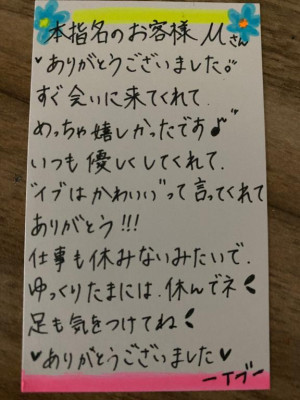 本指名のお客様Mさん
♥ありがとうございました。
すぐ会いに来てくれて、
めっちゃ嬉しかったです♪
いつも優しくしてくれて、
"イブはかわいい"って言ってくれて
ありがとう!!!
仕事も休みないみたいで、
ゆっくりたまには、休んでネ
足も気をつけてね
♥ありがとうございました♥
ーイブー